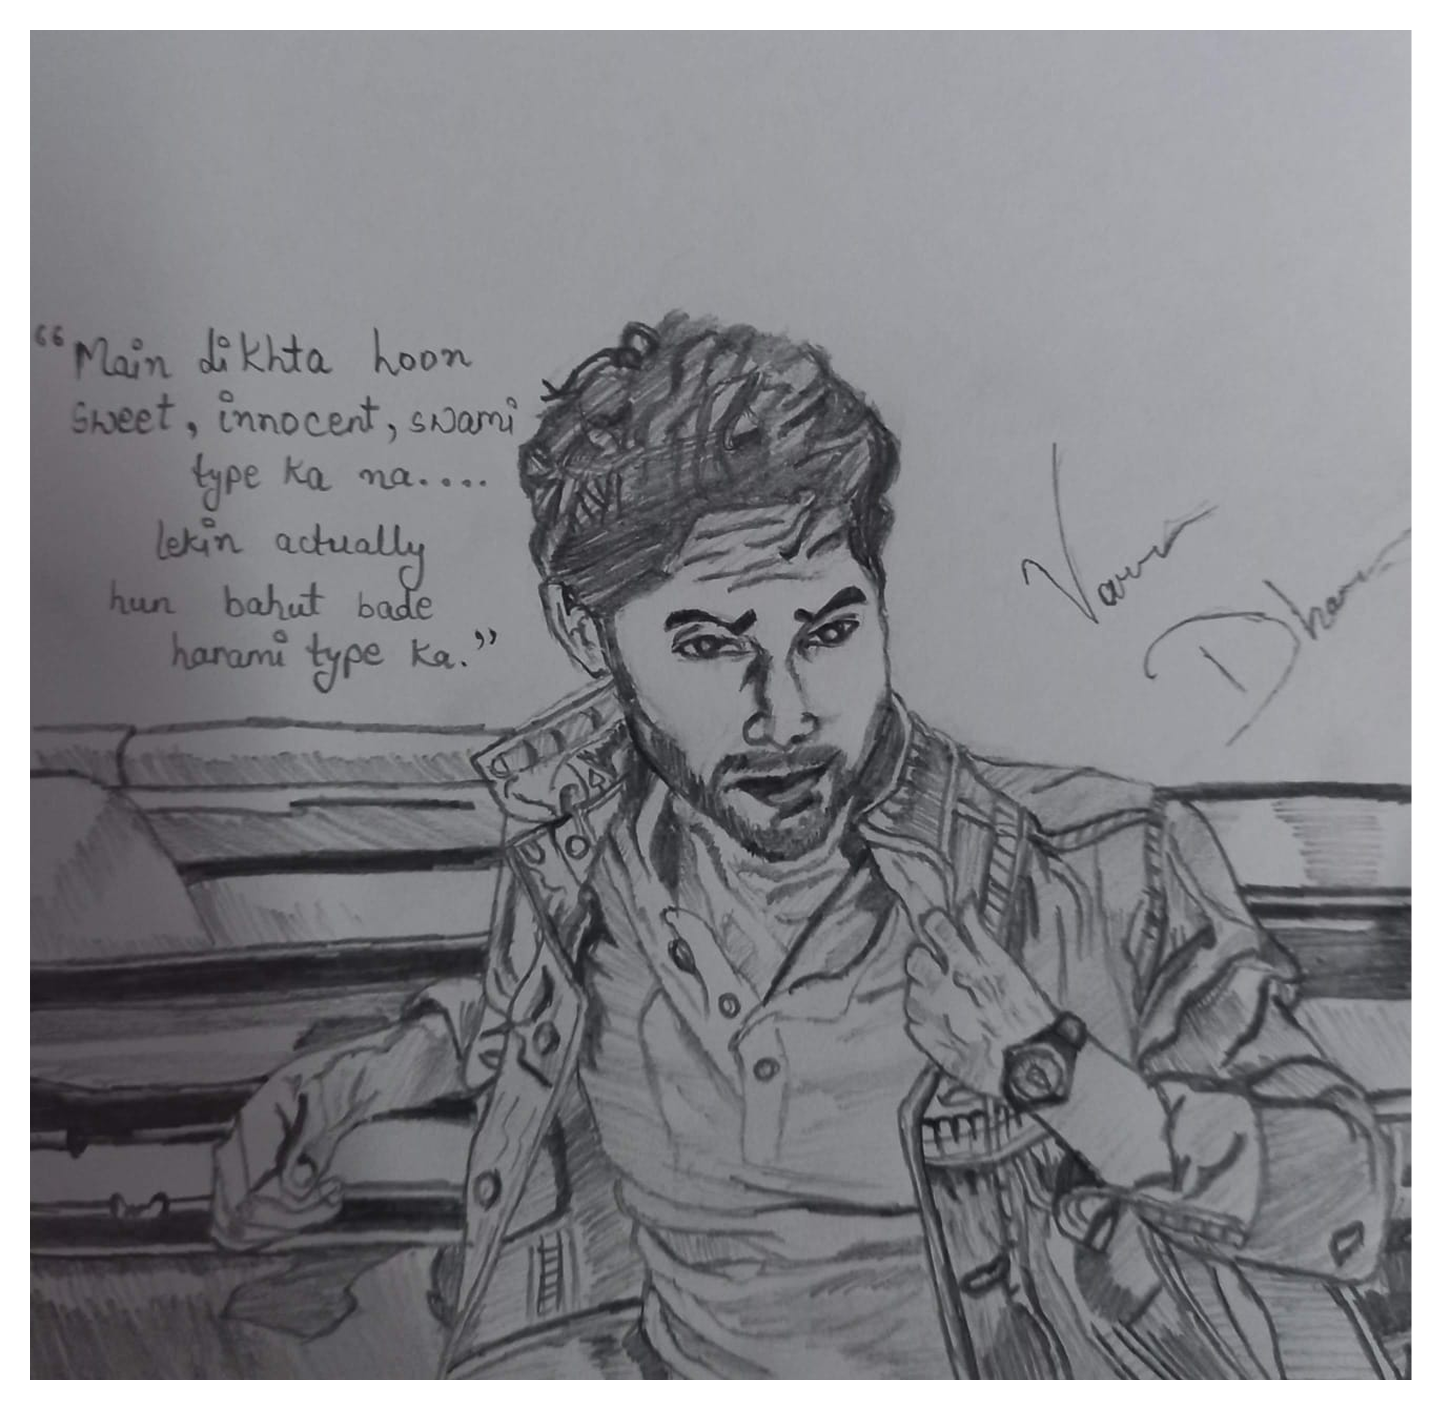 “Main dikhta hoon
sweet, innocent, swami
type ka na....
lekin actually
hun bahut bade
harami type ka.”
Varun
Dhawan